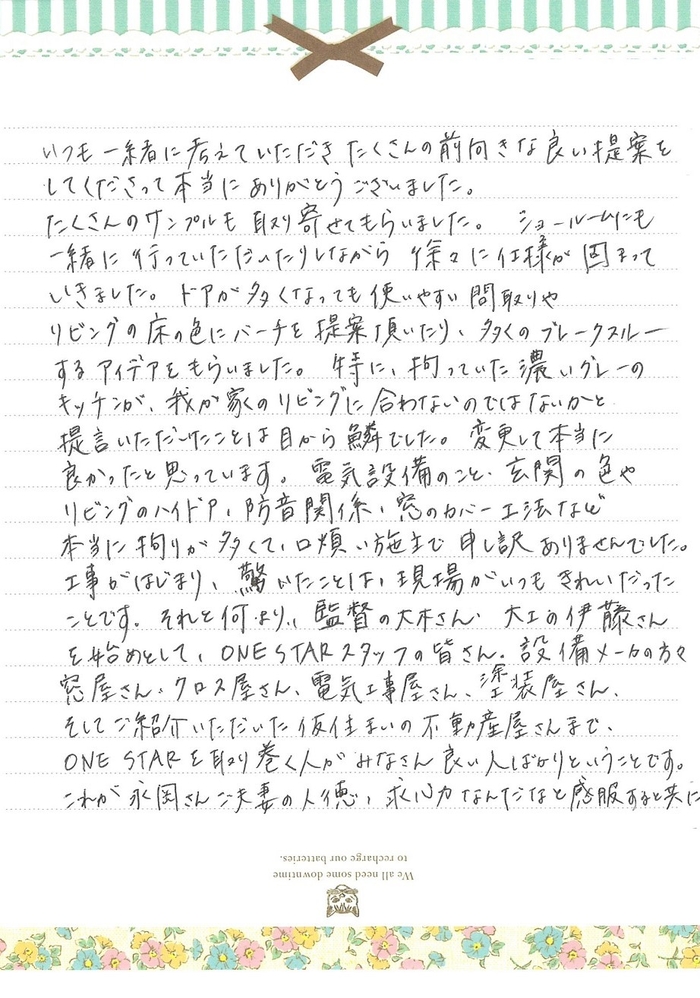 いつも一緒に考えていただき たくさんの前向きな良い提案を
してくださって本当に ありがとう ございました。
たくさんのサンプルも 取り寄せてもらいました。 ショールームにも
一緒に行っていただいたりしながら 徐々に仕様が固まって
いきました。ドアが多くなっても使いやすい間取りや
リビングの床の色にパーチを提案頂いたり、多くのブレークスルー
するアイデアをもらいました。 特に、拘っていた濃いグレーの
キッチンが、我が家のリビングに合わないのではないかと
提言いただけたことは目から鱗でした。変更して本当に
良かったと思っています。電気設備のこと・玄関の色や
リビングのハイドア、防音関係、窓のカバー工法など
本当に拘りが多くて、口煩い施主で申し訳ありませんでした。
工事がはじまり、驚いたことは、現場がいつもきれいだった
ことです。それと何より、監督の大木さん・大工の伊藤さん
を始めとして、ONE STARスタッフの皆さん、設備メーカの方々
窓屋さん・クロス屋さん、電気工事屋さん、塗装屋さん、
そしてご紹介いただいた仮住まいの不動産屋さんまで、
ONE STARを取り巻く人がみなさん良い人ばかりということです。
これが永岡さんご夫妻の人徳、求心力なんだなと感服すると共に
We all need some downtime
to recharge our batteries.